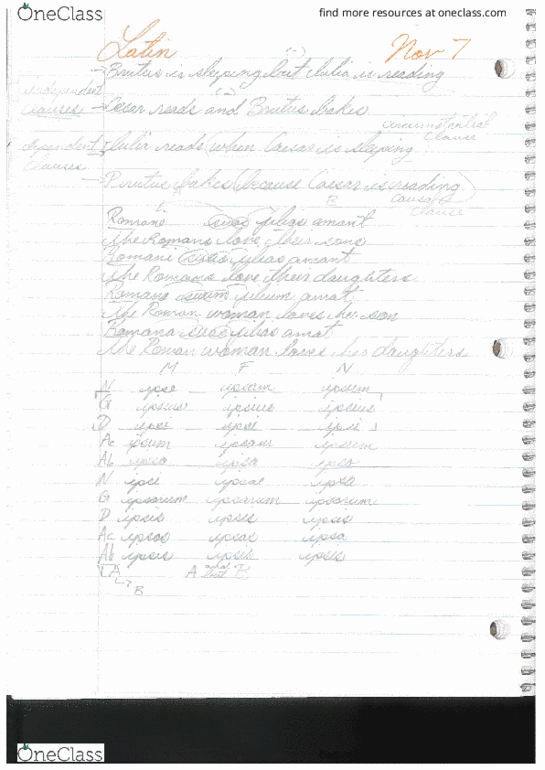 OneClass
find more resources at oneclass.com
Latin Nov 7
Brutus is sleeping but Julia is reading
independent
clauses
Cesar reads and Brutus bakes
circumstantial
clause
dependent
clauses
Julia reads (when Caesar is sleeping
Brutus bakes (because Caesar is reading)
causal
clause
Romani suos filios amant
The Romans love their sons
Romani suas filias amant
The Romans love their daughters
Romana suum filium amat
The Roman woman loves her son
Romana suas filias amat
The Roman woman loves her daughters
M F N
N ipse ipsum
G ipsius ipsius ipsius
D ipsi ipsi ipsi
Ac ipsum ipsam ipsum
Ab ipso ipsa ipso
N ipsi ipsae ipsa
G ipsorum ipsarum ipsorum
D ipsis ipsis ipsis
Ac ipsos ipsas ipsa
Ab ipsis ipsis ipsis
A A B
B
OneClass